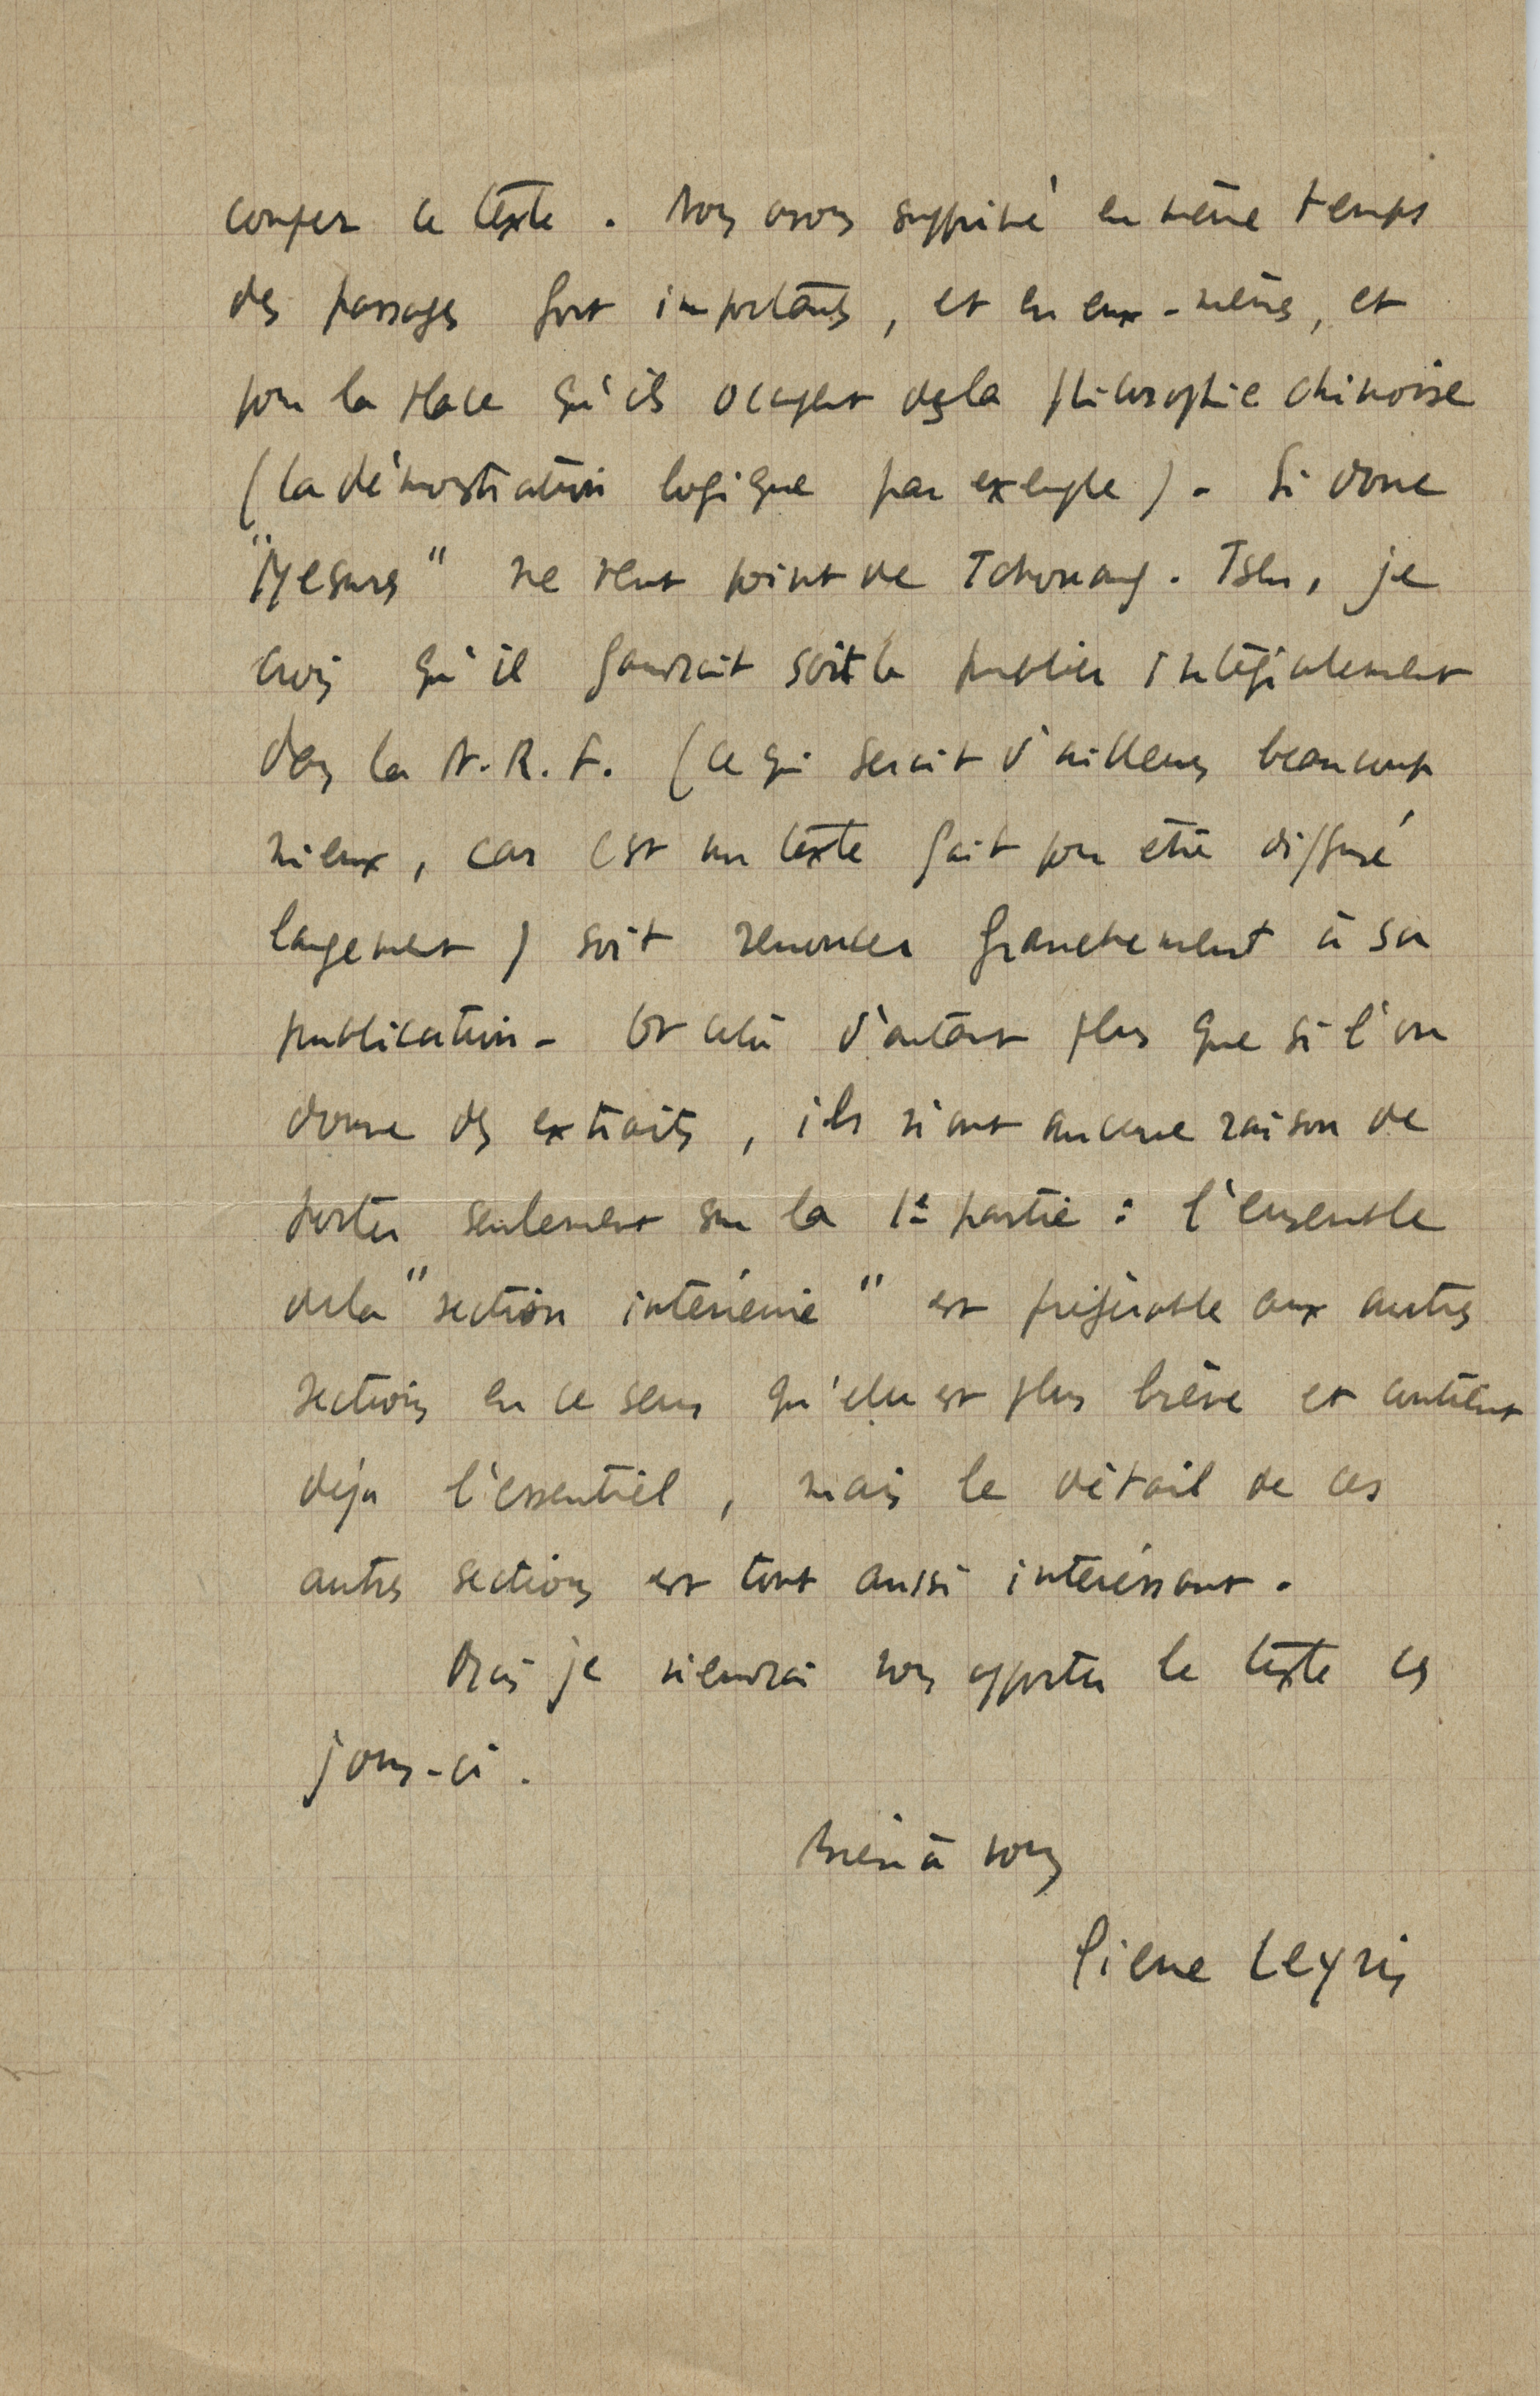 couper ce texte. Nous avons supprimé en même temps
des passages fort importants, et en eux-mêmes, et
pour la place qu'ils occupent ds la philosophie chinoise
(la démonstration logique par exemple). Si donc
"Mesures" ne veut point de Tchouang-Tseu, je
crois qu'il faudrait soit le publier intégralement
dans la N.R.F. (ce qui serait d'ailleurs beaucoup
mieux, car c'est un texte fait pour être diffusé
largement) soit renoncer franchement à sa
publication. Et cela d'autant plus que si l'on
donne des extraits, ils n'ont aucune raison de
porter seulement sur la 1e partie : l'ensemble
de la "section intérieure" est préférable aux autres
sections en ce sens qu'elle est plus brève et contient
déjà l'essentiel, mais le détail de ces
autres sections est tout aussi intéressant.
Mais je viendrai vous apporter le texte ces
jours-ci.
bien à vous
Pierre Leyris